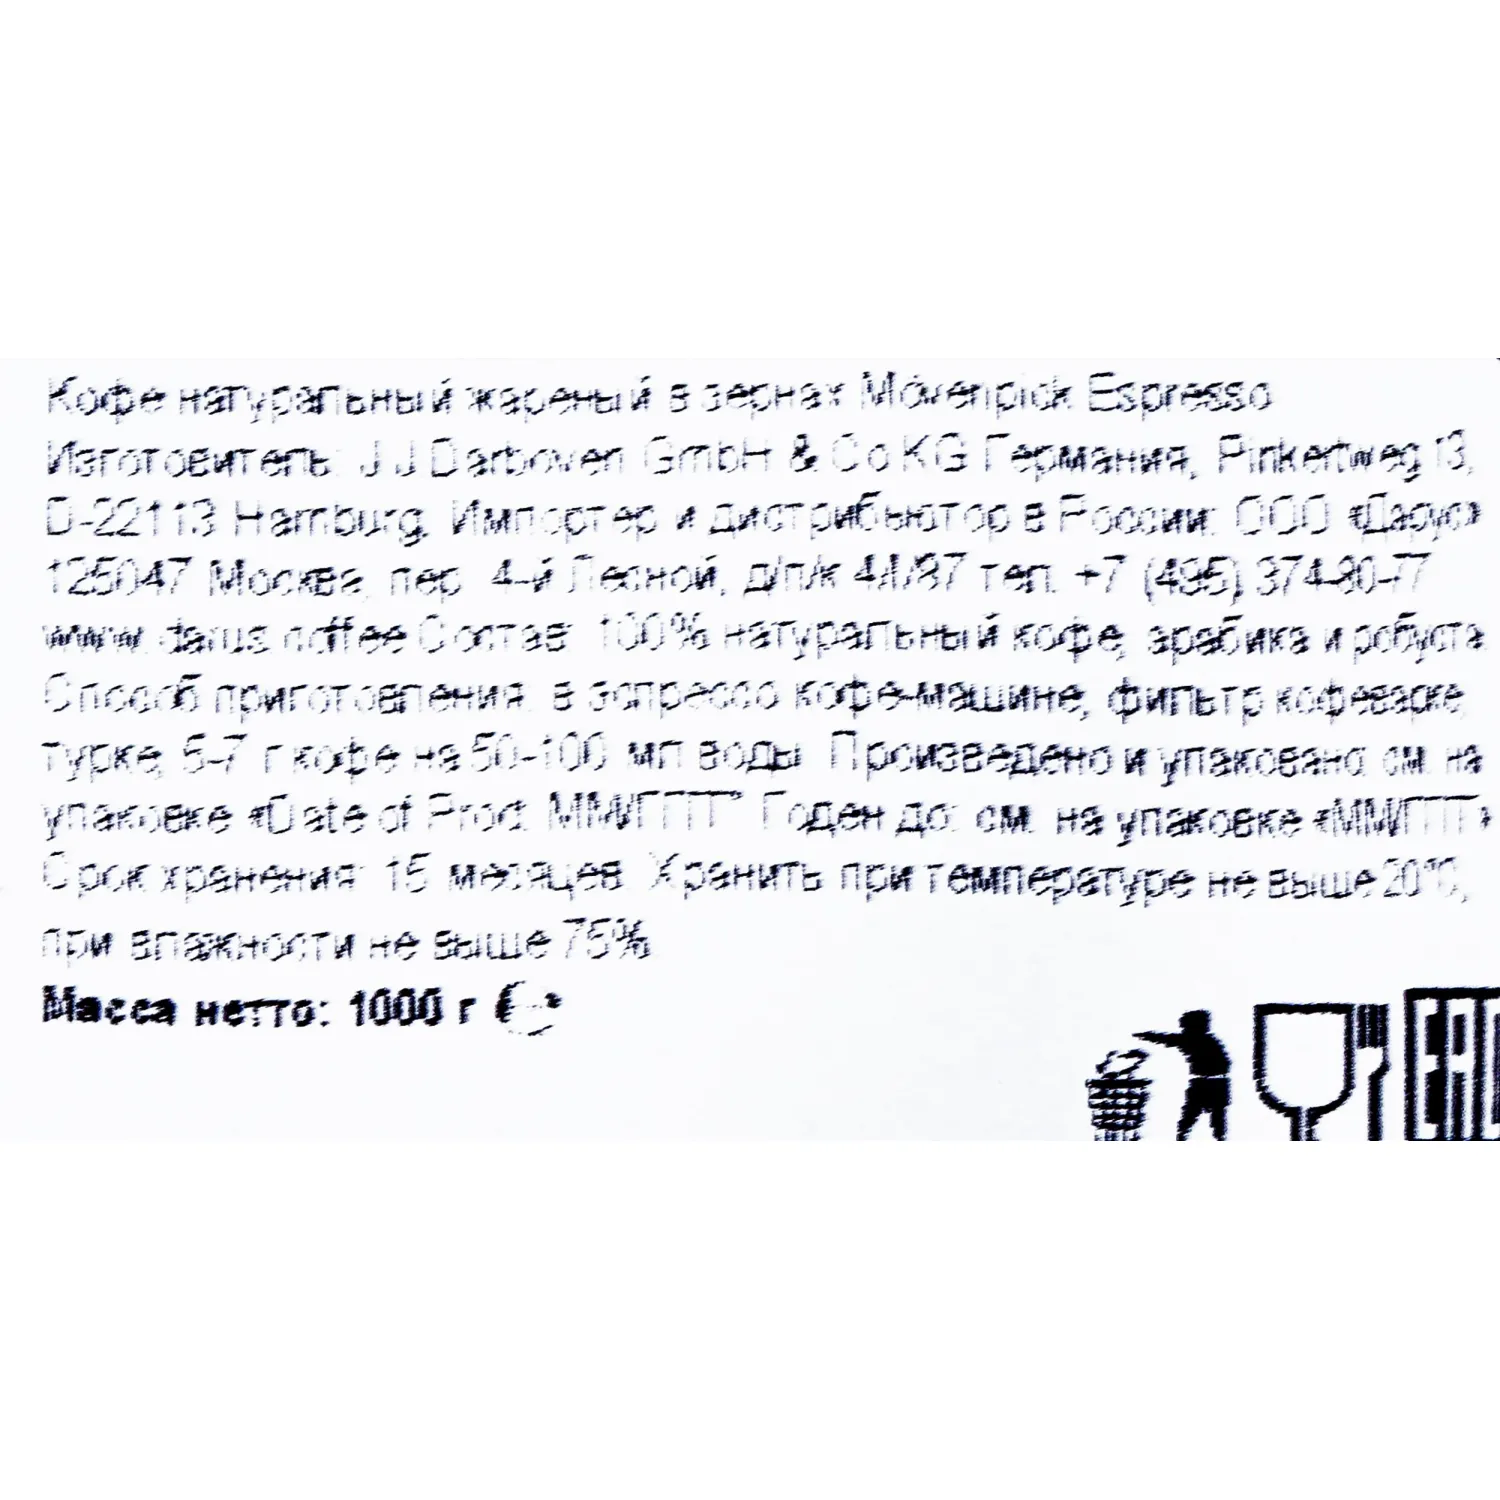 Кофе натуральный жареный в зернах Mövenpick Espresso
Изготовитель: J.J.Darboven GmbH & Co KG Германия, Pinkertweg 13,
D-22113 Hamburg. Импортер и дистрибьютор в России: ООО «Дарус»
125047 Москва, пер. 4-й Лесной, д/п/к 4/1/87 тел. +7 (495) 374-80-77
www.darus.coffee Состав: 100% натуральный кофе, арабика и робуста
Способ приготовления: в эспрессо кофе-машине, фильтр кофеварке,
турке, 5-7 г кофе на 50-100 мл воды. Произведено и упаковано: см. на
упаковке «Date of Prod. ММ/ГГГГ" Годен до: см. на упаковке «ММ/ГГГГ»
Срок хранения: 15 месяцев. Хранить при температуре не выше 20°С,
при влажности не выше 75%
Масса нетто: 1000 г ℮
EAC